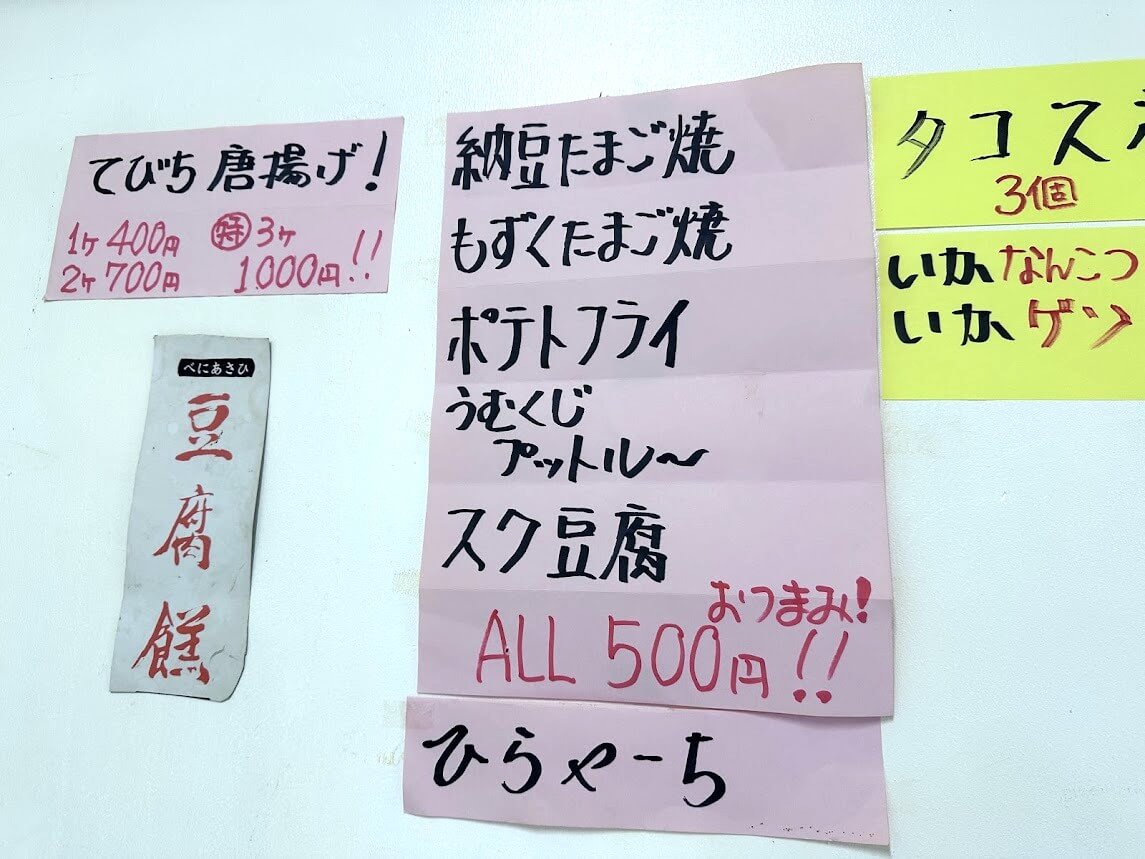 てびち唐揚げ!
1ケ400円 特3ケ
2ケ700円 1000円!!
べにあさひ
豆腐餻
納豆たまご焼
もずくたまご焼
ポテトフライ
うむくじ
プットル〜
スク豆腐
おつまみ!
ALL 500円!!
ひらやーち
タコス
3個
いかなんこつ
いかゲソ